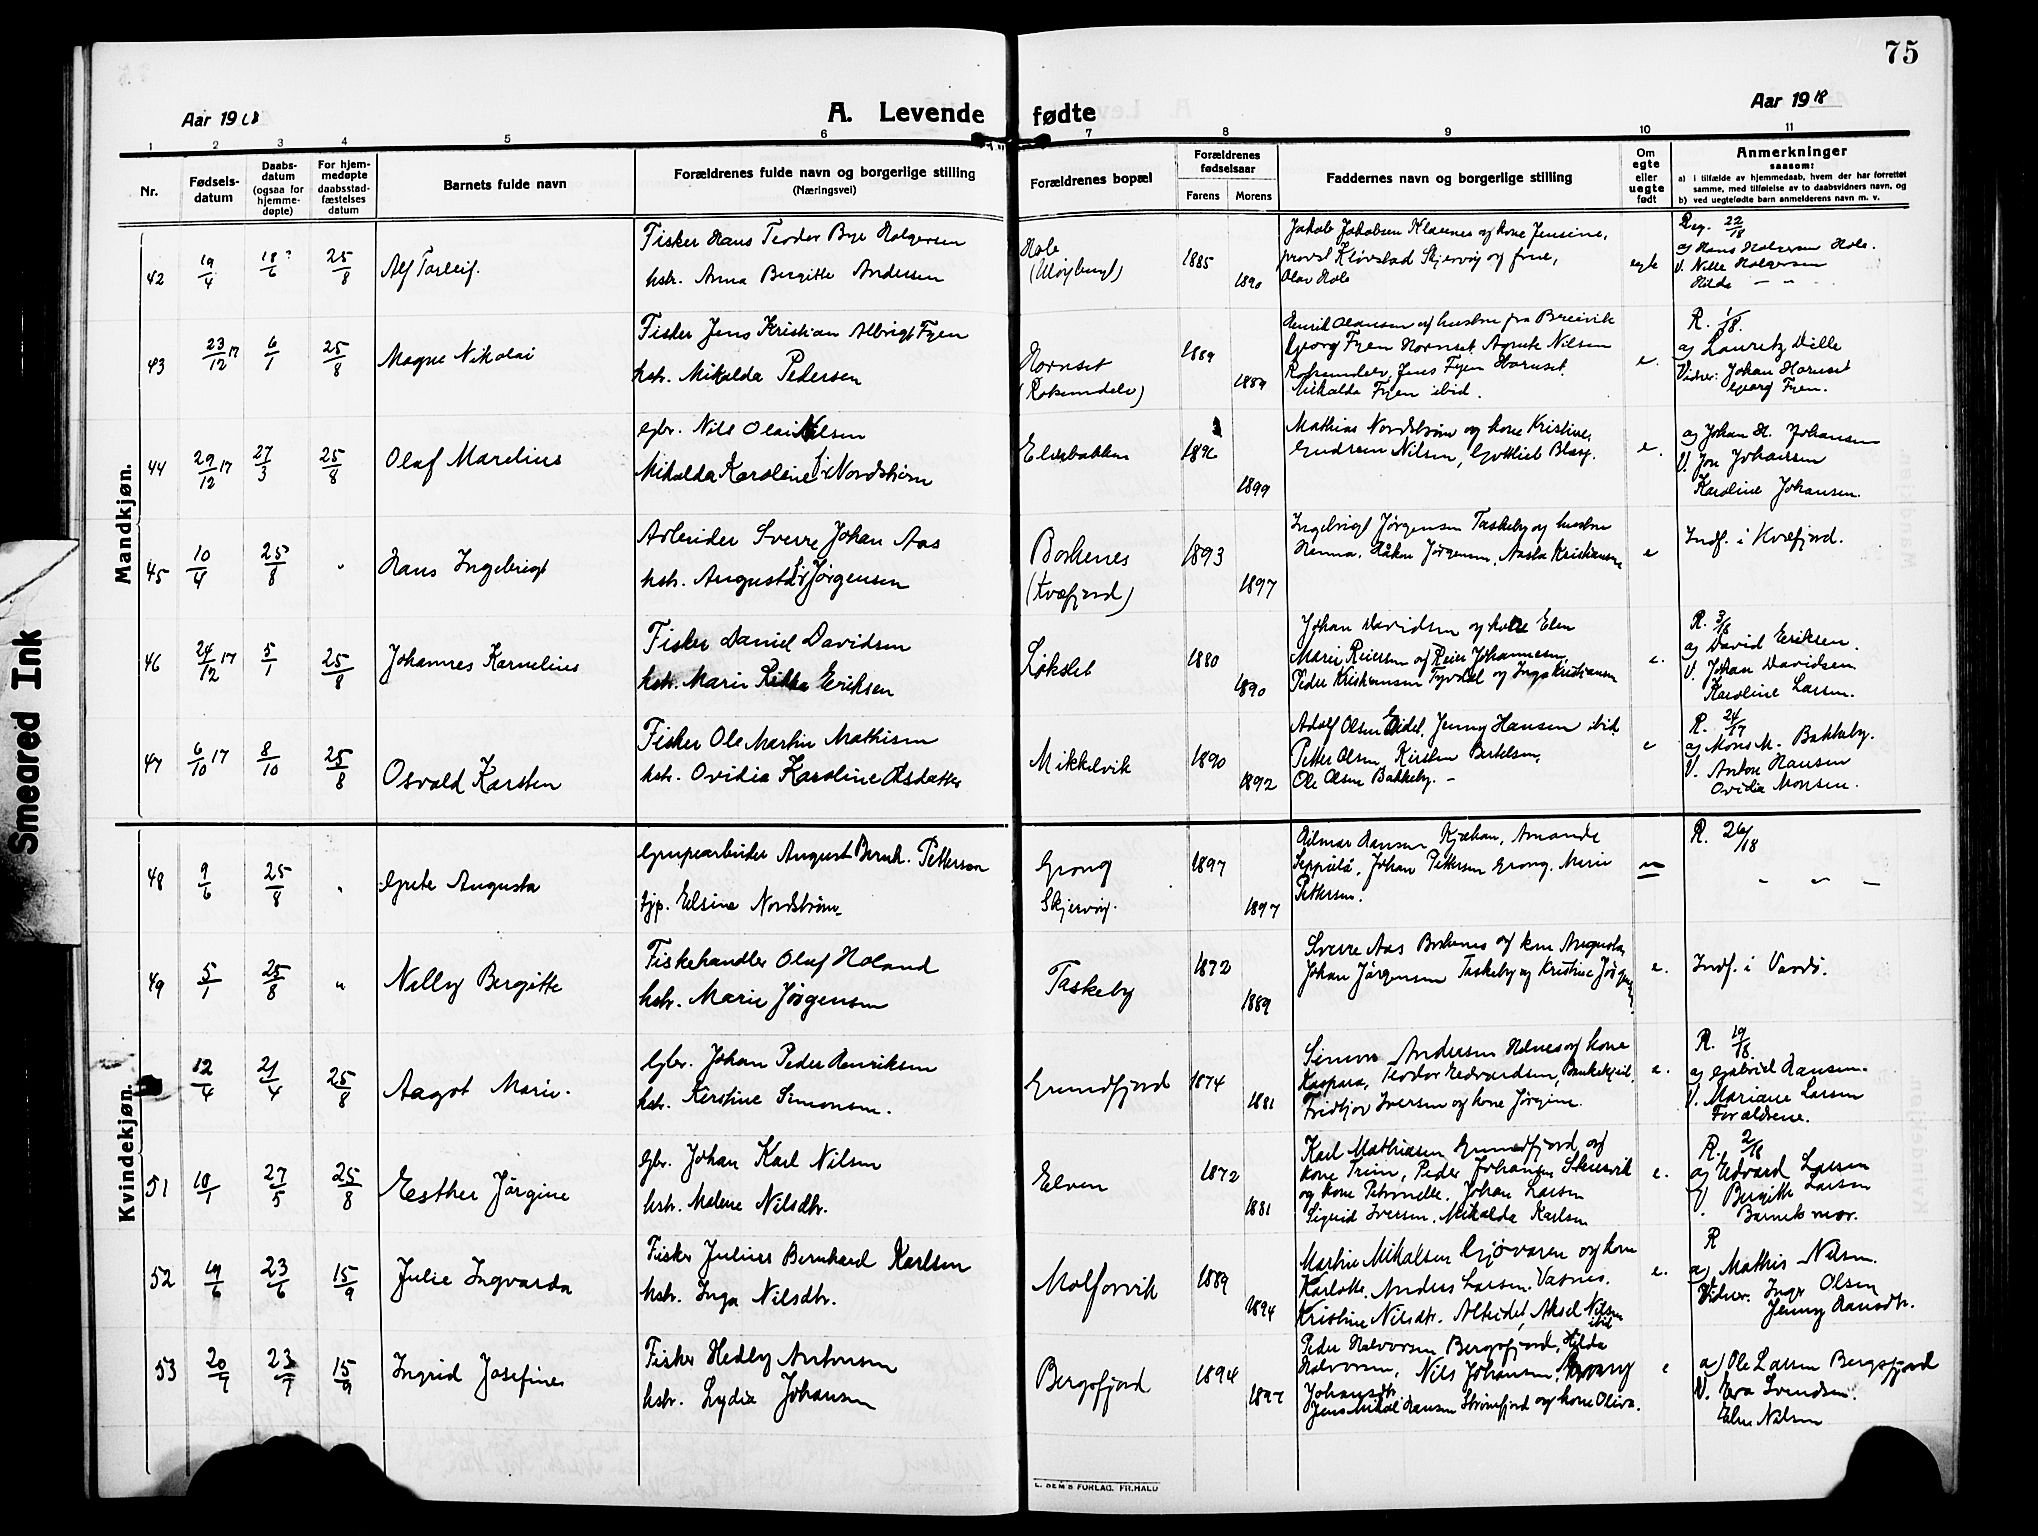 75
Aar 1918
A. Levende fødte
Aar 1918
1 2 3 4 5 6 7 8 9 10 11
Nr.
Fødsels-
datum
Daabs-
datum
(ogsaa for
hjemme-
døpte)
For hjem-
medøpte
daabsstad-
fæstelses
datum
Barnets fulde navn
Forældrenes fulde navn og borgerlige stilling
(Næringsvei)
Forældrenes bopæl
Forældrenes
fødselsaar
Farens Morens
Faddernes navn og borgerlige stilling
Om
egte
eller
uegte
født
Anmerkninger
saasom:
a) i tilfælde av hjemmedaab, hvem der har forrettet
samme, med tilføielse av to daabsvidners navn, og
b) ved uegtefødte barn anmelderens navn m. v.
Mandkjøn.
42 19/4 18/6? 25/8 Alf Torleif.
Fisker Hans Teodor Bye Holgersen
hstr. Anna Bergitte Andersen
Hole
1885 1890
Jakob Jakobsen Klauenes og kone Jensine,
provst Kløvstad Skjervøy og frue,
Olav Hole
egte
Reg. 22/18
a) Hans Holgersen Hole.
V. Nille Holgersen
Hilda — " —
43 23/12 17 6/1 25/8 Magne Nikolai
Fisker Jens Kristian Albrigt Fyen
hstr. Mikalda Pedersen
Hornset
(Rotsundelv)
1889 1889
Henrik Olaussen og hustru fra Breivik
Georg Fyen Hornset, Agnete Nilsen
Rotsundelv, Jens Fyen Hornset.
Mikalda Fyen ibid.
e.
R. 1/18.
a) Lauretz Dille
Vidner: Johan Hornset
Georg Fyen.
44 29/12 17 27/3 25/8 Olaf Marelius
gbr. Nils Olai Nilsen
Mikalda Karoline f. Nordstrøm
Elvebakken
1899
Mathias Nordstrøm og kone Kristine,
Gudrun Nilsen, Gottlieb Blasy.
e.
a) Johan H. Johansen
V. Jon Johansen
Karoline Johansen.
45 10/4 25/8 " Hans Ingebrigt
Arbeider Sverre Johan Aas
hstr. Augusta f. Jørgensen
Borkenes
(Kvæfjord)
1893 1897
Ingebrigt Jørgensen Taskeby og hustru
Hanna, Håkon Jørgensen, Aasta Kristiansen
e
Indf. i Kvæfjord.
46 24/12 17 5/1 25/8 Johannes Kornelius
Fisker Daniel Davidsen
hstr. Marie Rikka Eriksen
Løkslet
1880 1890
Johan Davidsen og kone Elen
Marie Reiersen og Reier Johannesen,
Peder Kristiansen Tyvdal og Inga Kristiansen
e.
R. 3/18
a) David Eriksen.
V. Johan Davidsen
Karoline Larsen.
47 6/10 17 8/10 25/8 Osvald Karsten
Fisker Ole Martin Mathisen
hstr. Ovidia Karoline Olsdatter
Mikkelvik
1890 1892
Adolf Olsen Eidet, Jenny Hansen ibid.
Petter Olsen, Kirsten Bertelsen,
Ole Olsen Bakkeby. —
e
R. 24/17
a) Mons M. Bakkeby.
V. Anton Hansen
Ovidia Monsen.
Kvindekjøn.
48 9/6 25/8 " Grete Augusta
Grupearbeider August Bernh. Petterson
tjp. Elsine Nordstrøm
Grong
Skjervøy.
1897 1897
Hilmar Hansen Kjækan, Amanda
Seppälä, Johan Pettersen Grong, Marie
Pettersen.
R. 26/18
49 5/1 25/8 " Nelly Bergitte
Fiskehandler Oluf Holand
hstr. Marie Jørgensen
Taskeby
1872 1889
Sverre Aas Borkenes og kone Augusta,
Johan Jørgensen Taskeby og Kristine Jørgensen
e.
Indf. i Vardø.
12/4 21/4 25/8 Aagot Marie.
Gbr. Johan Peder Henriksen
hstr. Kerstine Simonsen.
Grundfjord
1874 1881
Simon Andersen Hånes og kone
Kaspara, Teodor Edvardsen, Bankekeil,
Fridtjov Iversen og kone Jørgine.
e.
R. 19/18
a) Gabriel Hansen
V. Mariane Larsen
Forældrene.
51 10/1 27/5 25/8 Esther Jørgine
Gbr. Johan Karl Nilsen
hstr. Malene Nilsdtr.
Elven
1872 1881
Karl Mathiasen Grundfjord og
kone Trine, Peder Johansen Skursvik
og kone Petronelle, Johan Larsen
Sigrid Iversen, Mikalda Karlsen
e.
R. 2/18
a) Edvard Larsen
V. Bergitte Larsen
Barnets mor.
52 19/6 23/6 15/9 Julie Ingvarda
Fisker Julius Bernhard Karlsen
hstr. Inga Nilsdtr.
Molforvik
1889 1894
Martin Mikalsen Gjøvaren og kone
Karlotte, Anders Larsen, Vasnes,
Kristine Nilsdtr. Alteidet, Aksel Nilsen
ibid
e.
R
a) Mathis Nilsen.
Vidner: Inger Olsen
Jenny Hansdtr.
53 20/7 23/7 15/9 Ingrid Josefine
Fisker Hedley Antonsen
hstr. Lydia Johansen
Bergsfjord
1894 1897
Peder Halvorsen Bergsfjord, Hilda
Halvorsen, Nils Johansen,
Johansdtr.
Jens Mikal Hansen Strømfjord og kone Oliva.
e
a) Ole Larsen Bergsfjord
V. Eva Svendsen.
Elen Nilsen
E. SEM'S FORLAG. FR.HALD
Smeared Ink